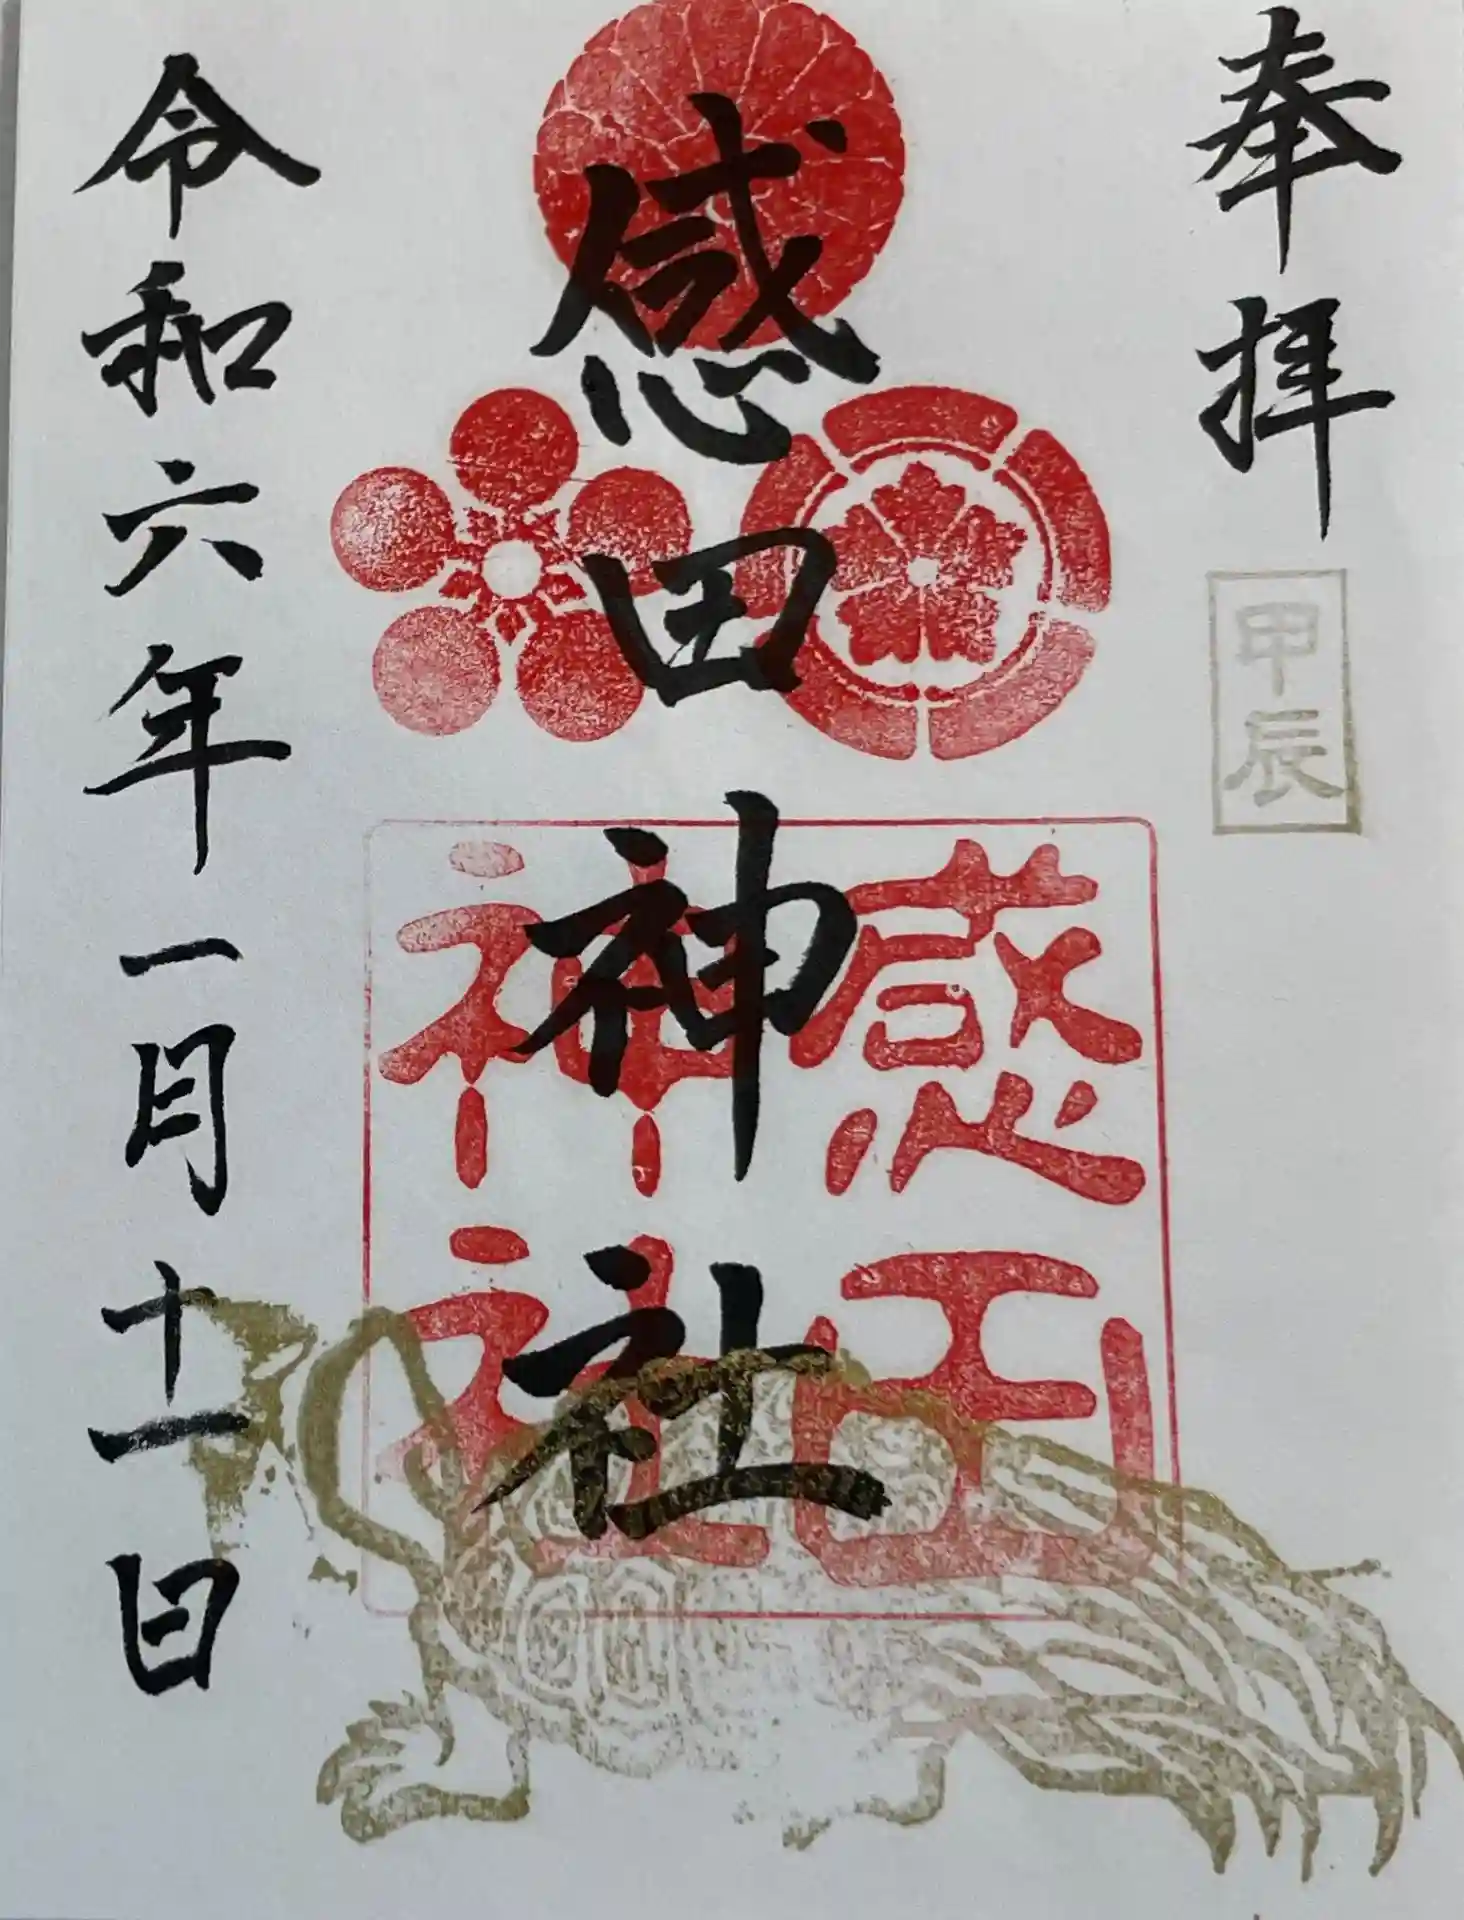 奉拝
甲辰
感田神社
感田
神社
令和六年一月十一日